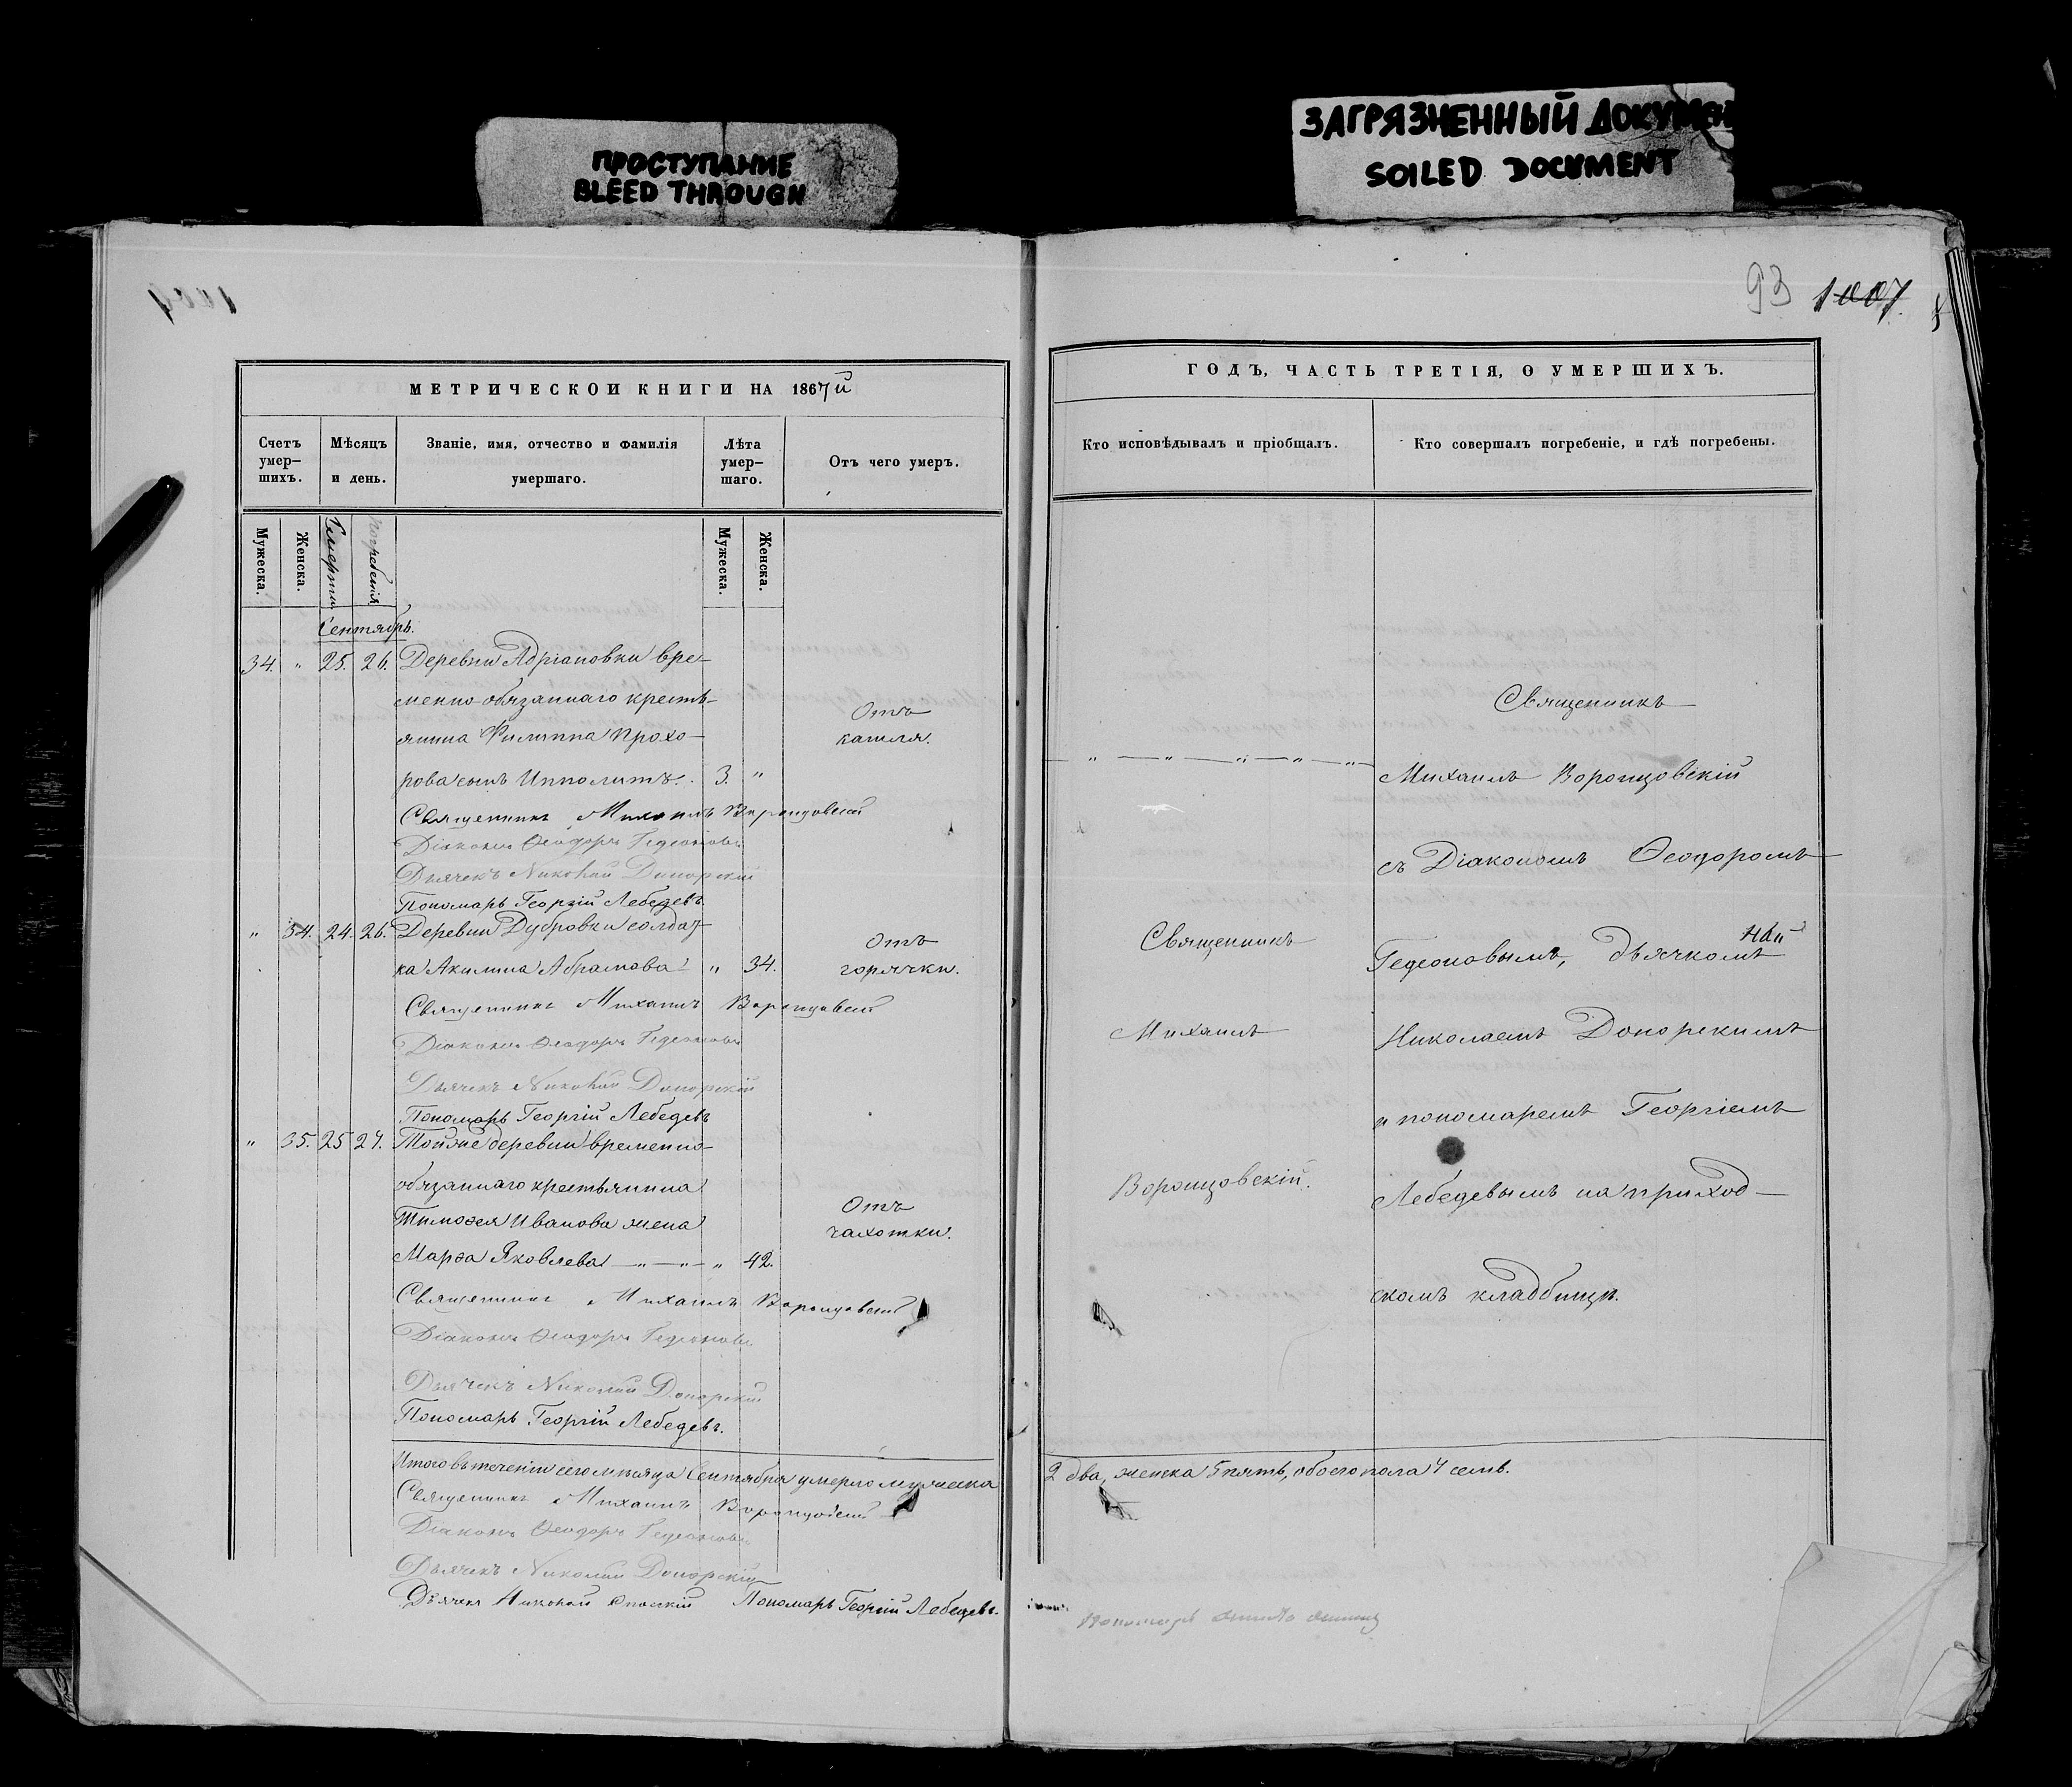 ПРОСТУПАНИЕ
BLEED THROUGH
ЗАГРЯЗНЕННЫЙ ДОКУМЕН
SOILED DOCUMENT
93 1007.
МЕТРИЧЕСКОИ КНИГИ НА 1867й
Счетъ умер–шихъ.
Мѣсяцъ и день.
Званіе, имя, отчество и фамилія умершаго.
Лѣта умер–шаго.
Отъ чего умеръ.
Мужеска.
Женска.
Смерти
погребенія
Мужеска.
Женска.
Сентябрь.
34. " 25. 26. Деревни Адріановки вре–
менно-обязаннаго кресть–
янина Филиппа Прохо–
рова сынъ Ипполитъ. 3. "
Отъ
кашля.
Священникъ Михаилъ Воронцовскій
Діаконъ Ѳеодоръ Гедеоновъ
Дьячекъ Николай Донорскій
Пономарь Георгій Лебедевъ.
" 34. 24. 26. Деревни Дубровки солдат–
ка Акилина Абрамова " 34.
Отъ
горячки.
Священникъ Михаилъ Воронцовскій
Діаконъ Ѳеодоръ Гедеоновъ
Дьячекъ Николай Донорскій
Пономарь Георгій Лебедевъ
" 35. 25 27. Тойже деревни временно–
обязаннаго крестьянина
Тимоѳея Иванова жена
Марѳа Яковлева — " — " — " 42.
Отъ
чахотки.
Священникъ Михаилъ Воронцовскій
Діаконъ Ѳеодоръ Гедеоновъ
Дьячекъ Николай Донорскій
Пономарь Георгій Лебедевъ.
Итого въ теченіи сего мѣсяца Сентября умерло мужеска
Священникъ Михаилъ Воронцовскій
Діаконъ Ѳеодоръ Гедеоновъ
Дьячекъ Николай Донорскій
Дьячекъ Николай Пономарь Георгій Лебедевъ.
ГОДЪ, ЧАСТЬ ТРЕТІЯ, О УМЕРШИХЪ.
Кто исповѣдывалъ и пріобщалъ.
Кто совершалъ погребеніе, и гдѣ погребены.
" — " — " — " — "
Священникъ
Михаилъ
Воронцовскій.
Священникъ
Михаилъ Воронцовскій
съ Діакономъ Ѳеодоромъ
Гедеоновымъ, дьячкомъ
Николаемъ Донорскимъ
и пономаремъ Георгіемъ
Лебедевымъ на приход–
скомъ кладбищѣ.
2 два, женска 5 пять, обоего пола 7 семь.
Пономарь